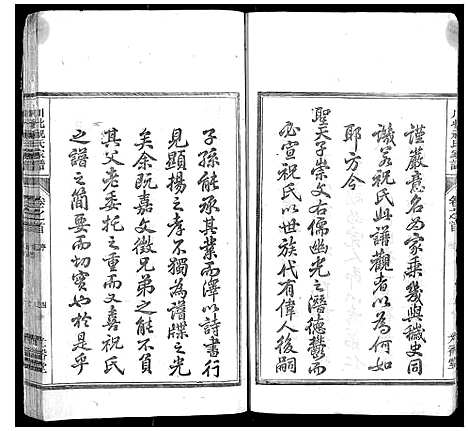 謹嚴意名為家乘幾與穢史同
譏若祝氏此譜觀者以為何如
耶方今
聖天子崇文右儒幽光之潛德鬱而
必宣祝氏以世族代有偉人後嗣
子孫能承其業而澤以詩書行
見顯揚之孝不獨為譜牒之光
矣余既嘉文徵兄弟之能不負
其父老委托之重而又喜祝氏
之譜之簡要而切實也於是乎